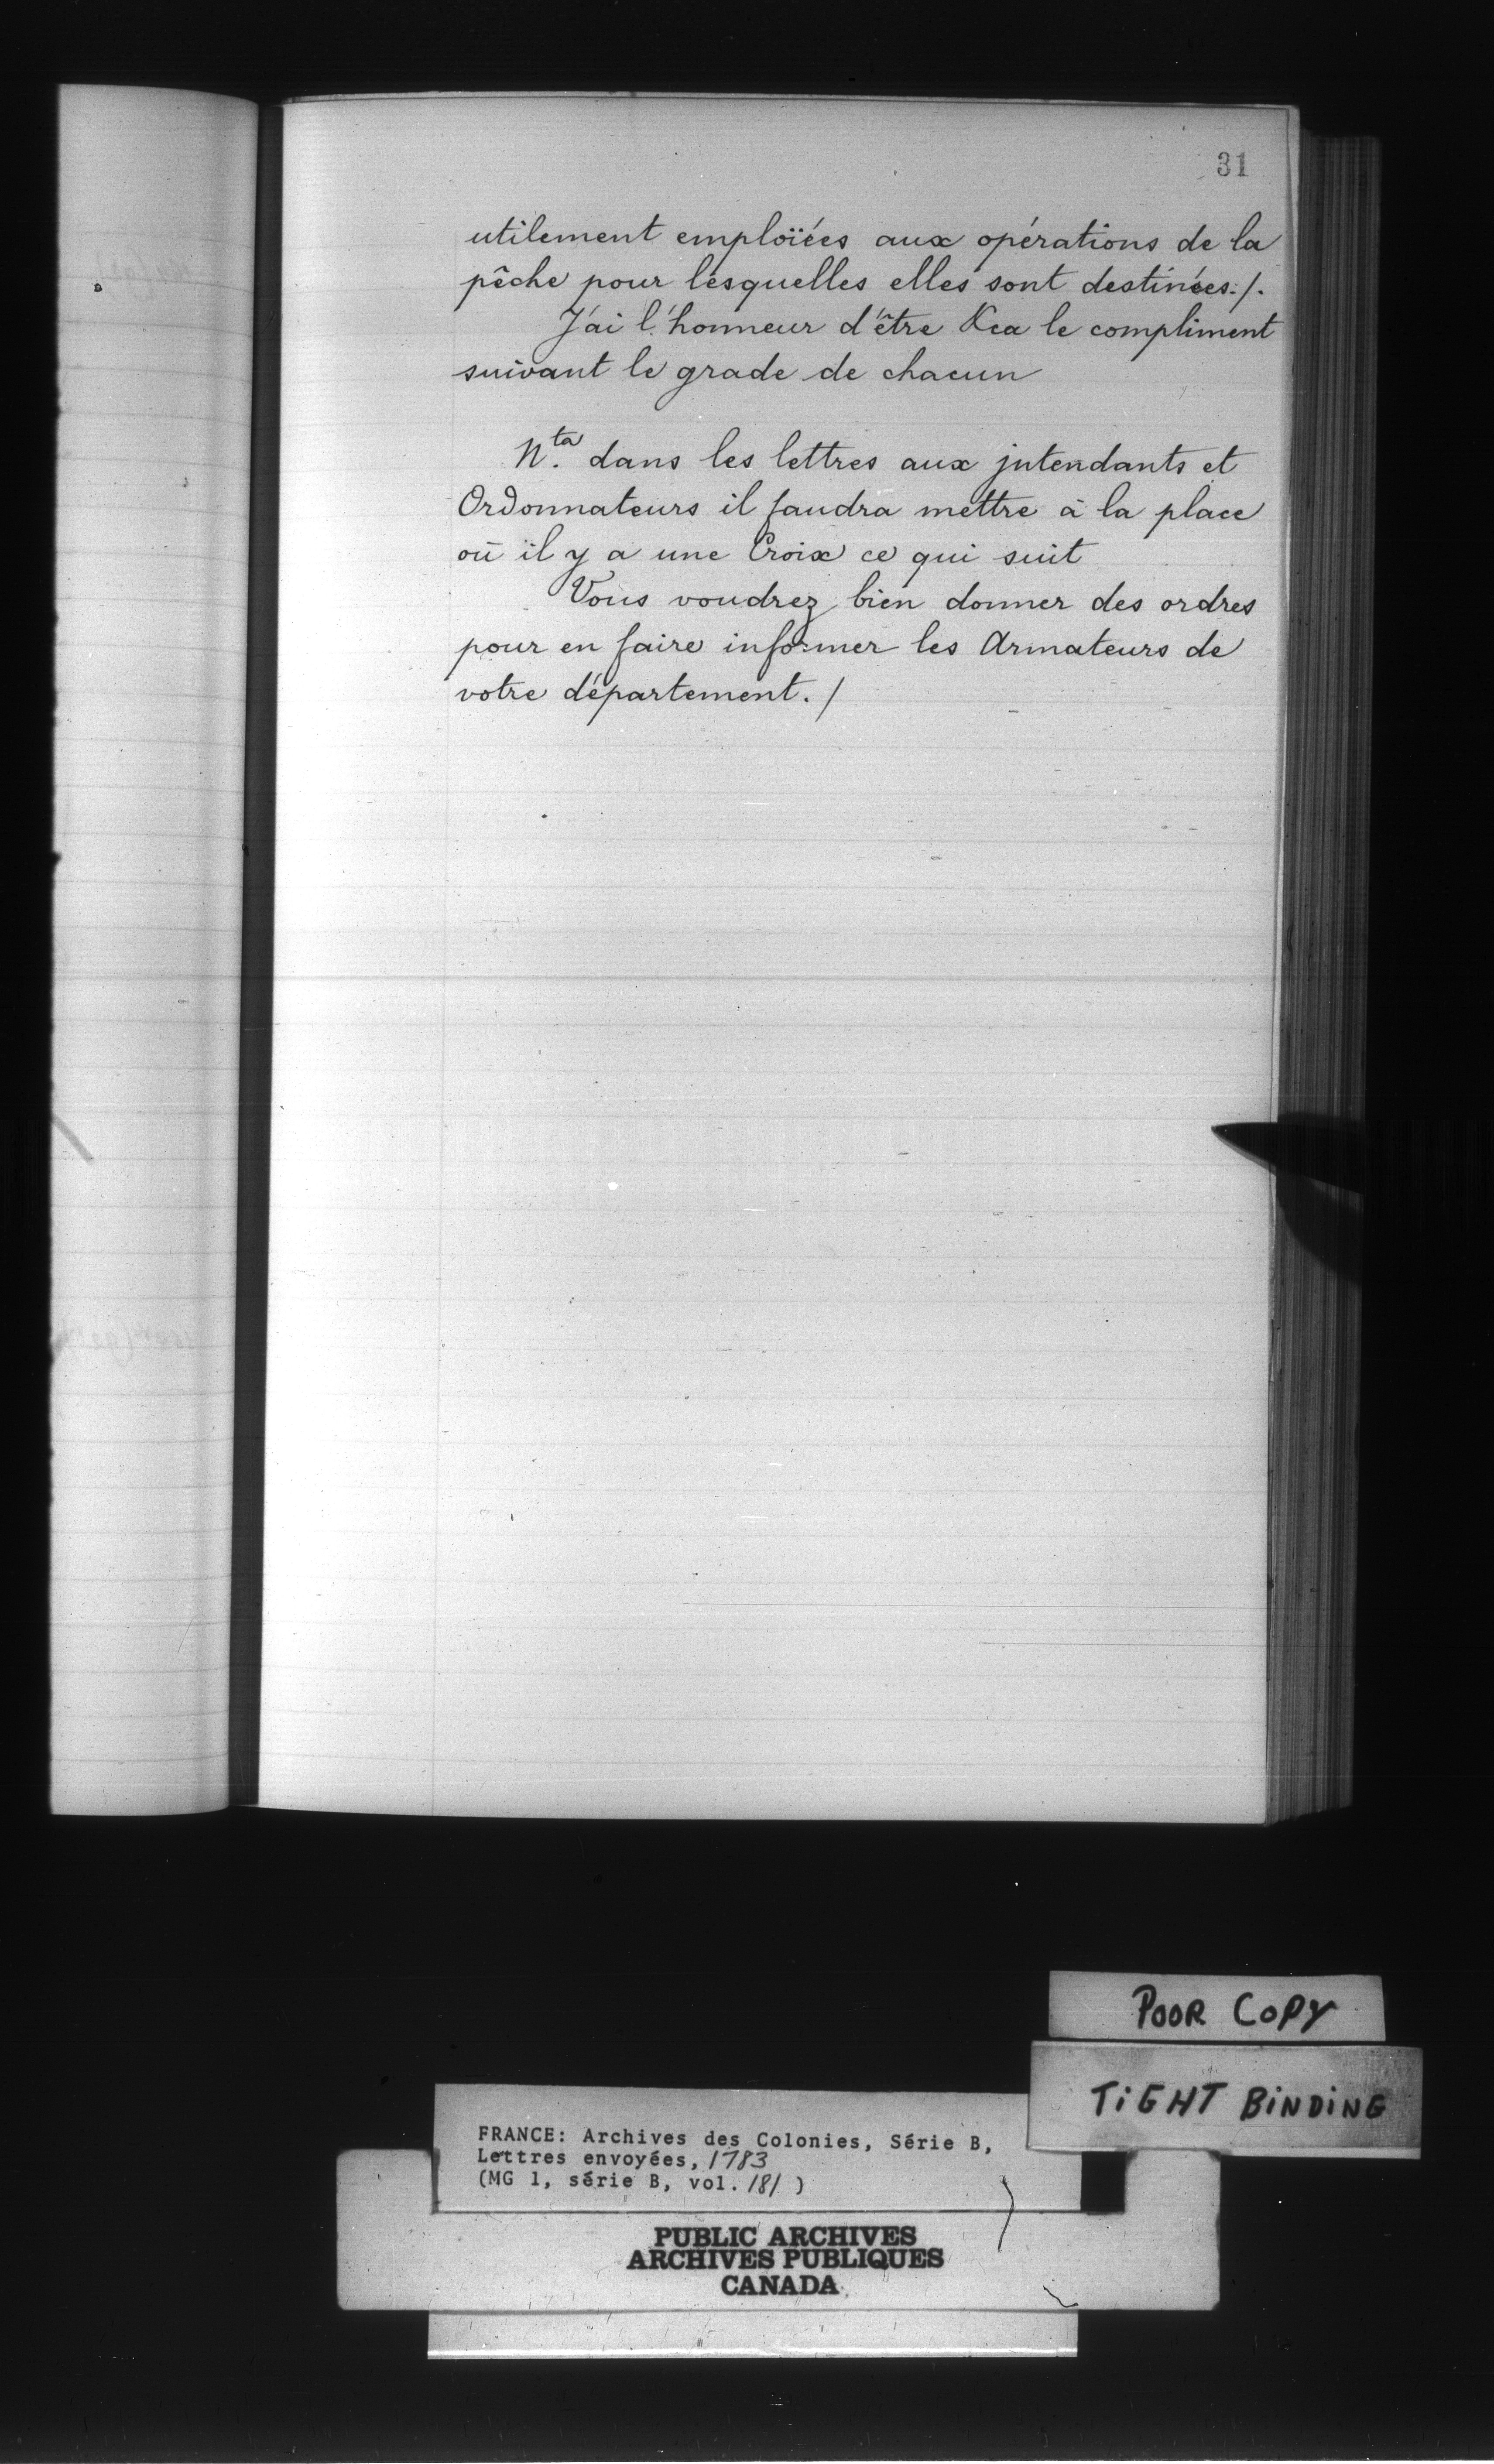 31
utilement emploïées aux opérations de la
pêche pour lesquelles elles sont destinées./.
J'ai l'honneur d'être &ca le compliment
suivant le grade de chacun
N.ta dans les lettres aux jntendants et
Ordonnateurs il faudra mettre à la place
où il y a une Croix ce qui suit
Vous voudrez bien donner des ordres
pour en faire informer les Armateurs de
votre département. /
POOR COPY
TIGHT BINDING
FRANCE: Archives des Colonies, Série B,
Lettres envoyées, 1783
(MG 1, série B, vol. 181 )
PUBLIC ARCHIVES
ARCHIVES PUBLIQUES
CANADA